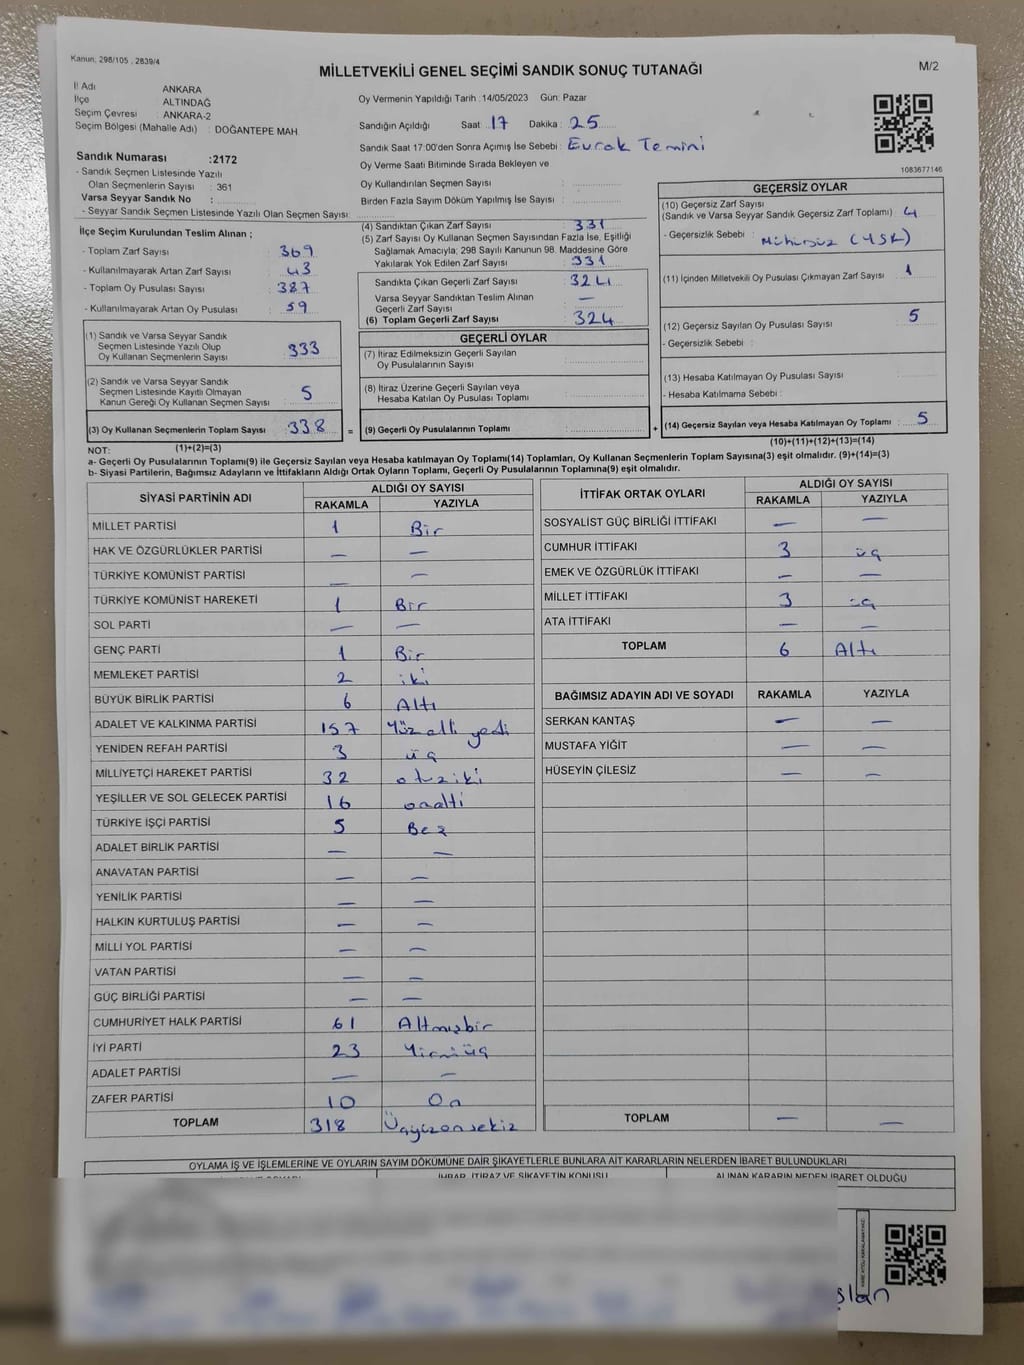 Kanun, 298/105 , 2839/4
MİLLETVEKİLİ GENEL SEÇİMİ SANDIK SONUÇ TUTANAĞI
M/2
İl Adı ANKARA
İlçe ALTINDAĞ
Seçim Çevresi : ANKARA-2
Seçim Bölgesi (Mahalle Adı) : DOĞANTEPE MAH.
Oy Vermenin Yapıldığı Tarih :14/05/2023 Gün: Pazar
Sandığın Açıldığı Saat : 17 Dakika : 25
Sandık Saat 17:00'den Sonra Açımış İse Sebebi : Evrak Temini
Oy Verme Saati Bitiminde Sırada Bekleyen ve
Oy Kullandırılan Seçmen Sayısı :
Birden Fazla Sayım Döküm Yapılmış İse Sayısı :
1083677146
Sandık Numarası :2172
- Sandık Seçmen Listesinde Yazılı
Olan Seçmenlerin Sayısı : 361
Varsa Seyyar Sandık No :
- Seyyar Sandık Seçmen Listesinde Yazılı Olan Seçmen Sayısı:
İlçe Seçim Kurulundan Teslim Alınan ;
- Toplam Zarf Sayısı : 369
- Kullanılmayarak Artan Zarf Sayısı : 43
- Toplam Oy Pusulası Sayısı : 387
- Kullanılmayarak Artan Oy Pusulası : 59
(1) Sandık ve Varsa Seyyar Sandık
Seçmen Listesinde Yazılı Olup
Oy Kullanan Seçmenlerin Sayısı : 333
(2) Sandık ve Varsa Seyyar Sandık
Seçmen Listesinde Kayıtlı Olmayan
Kanun Gereği Oy Kullanan Seçmen Sayısı : 5
(3) Oy Kullanan Seçmenlerin Toplam Sayısı : 338 =
(4) Sandıktan Çıkan Zarf Sayısı : 331
(5) Zarf Sayısı Oy Kullanan Seçmen Sayısından Fazla İse, Eşitliği
Sağlamak Amacıyla; 298 Sayılı Kanunun 98. Maddesine Göre
Yakılarak Yok Edilen Zarf Sayısı : 331
Sandıkta Çıkan Geçerli Zarf Sayısı : 324
Varsa Seyyar Sandıktan Teslim Alınan
Geçerli Zarf Sayısı : —
(6) Toplam Geçerli Zarf Sayısı : 324
GEÇERLİ OYLAR
(7) İtiraz Edilmeksizin Geçerli Sayılan
Oy Pusulalarının Sayısı :
(8) İtiraz Üzerine Geçerli Sayılan veya
Hesaba Katılan Oy Pusulası Toplamı :
(9) Geçerli Oy Pusulalarının Toplamı : +
GEÇERSİZ OYLAR
(10) Geçersiz Zarf Sayısı
(Sandık ve Varsa Seyyar Sandık Geçersiz Zarf Toplamı) : 4
- Geçersizlik Sebebi : Mühürsüz (YSK)
(11) İçinden Milletvekili Oy Pusulası Çıkmayan Zarf Sayısı : 1
(12) Geçersiz Sayılan Oy Pusulası Sayısı : 5
- Geçersizlik Sebebi :
(13) Hesaba Katılmayan Oy Pusulası Sayısı :
- Hesaba Katılmama Sebebi :
(14) Geçersiz Sayılan veya Hesaba Katılmayan Oy Toplamı : 5
NOT: (1)+(2)=(3)
(10)+(11)+(12)+(13)=(14)
a- Geçerli Oy Pusulalarının Toplamı(9) ile Geçersiz Sayılan veya Hesaba katılmayan Oy Toplamı(14) Toplamları, Oy Kullanan Seçmenlerin Toplam Sayısına(3) eşit olmalıdır. (9)+(14)=(3)
b- Siyasi Partilerin, Bağımsız Adayların ve İttifakların Aldığı Ortak Oyların Toplamı, Geçerli Oy Pusulalarının Toplamına(9) eşit olmalıdır.
SİYASİ PARTİNİN ADI ALDIĞI OY SAYISI
RAKAMLA YAZIYLA
MİLLET PARTİSİ 1 Bir
HAK VE ÖZGÜRLÜKLER PARTİSİ — —
TÜRKİYE KOMÜNİST PARTİSİ — —
TÜRKİYE KOMÜNİST HAREKETİ 1 Bir
SOL PARTİ — —
GENÇ PARTİ 1 Bir
MEMLEKET PARTİSİ 2 iki
BÜYÜK BİRLİK PARTİSİ 6 Altı
ADALET VE KALKINMA PARTİSİ 157 Yüz elli yedi
YENİDEN REFAH PARTİSİ 3 üç
MİLLİYETÇİ HAREKET PARTİSİ 32 otuziki
YEŞİLLER VE SOL GELECEK PARTİSİ 16 onaltı
TÜRKİYE İŞÇİ PARTİSİ 5 Beş
ADALET BİRLİK PARTİSİ — —
ANAVATAN PARTİSİ — —
YENİLİK PARTİSİ — —
HALKIN KURTULUŞ PARTİSİ — —
MİLLİ YOL PARTİSİ — —
VATAN PARTİSİ — —
GÜÇ BİRLİĞİ PARTİSİ — —
CUMHURİYET HALK PARTİSİ 61 Altmışbir
İYİ PARTİ 23 Yirmiüç
ADALET PARTİSİ — —
ZAFER PARTİSİ 10 On
TOPLAM 318 Üçyüzonsekiz
İTTİFAK ORTAK OYLARI ALDIĞI OY SAYISI
RAKAMLA YAZIYLA
SOSYALİST GÜÇ BİRLİĞİ İTTİFAKI — —
CUMHUR İTTİFAKI 3 üç
EMEK VE ÖZGÜRLÜK İTTİFAKI — —
MİLLET İTTİFAKI 3 üç
ATA İTTİFAKI — —
TOPLAM 6 Altı
BAĞIMSIZ ADAYIN ADI VE SOYADI RAKAMLA YAZIYLA
SERKAN KANTAŞ — —
MUSTAFA YİĞİT — —
HÜSEYİN ÇİLESİZ — —
TOPLAM — —
OYLAMA İŞ VE İŞLEMLERİNE VE OYLARIN SAYIM DÖKÜMÜNE DAİR ŞİKAYETLERLE BUNLARA AİT KARARLARIN NELERDEN İBARET BULUNDUKLARI
İHBAR, İTİRAZ VE ŞİKAYETİN KONUSU ALINAN KARARIN NEDEN İBARET OLDUĞU